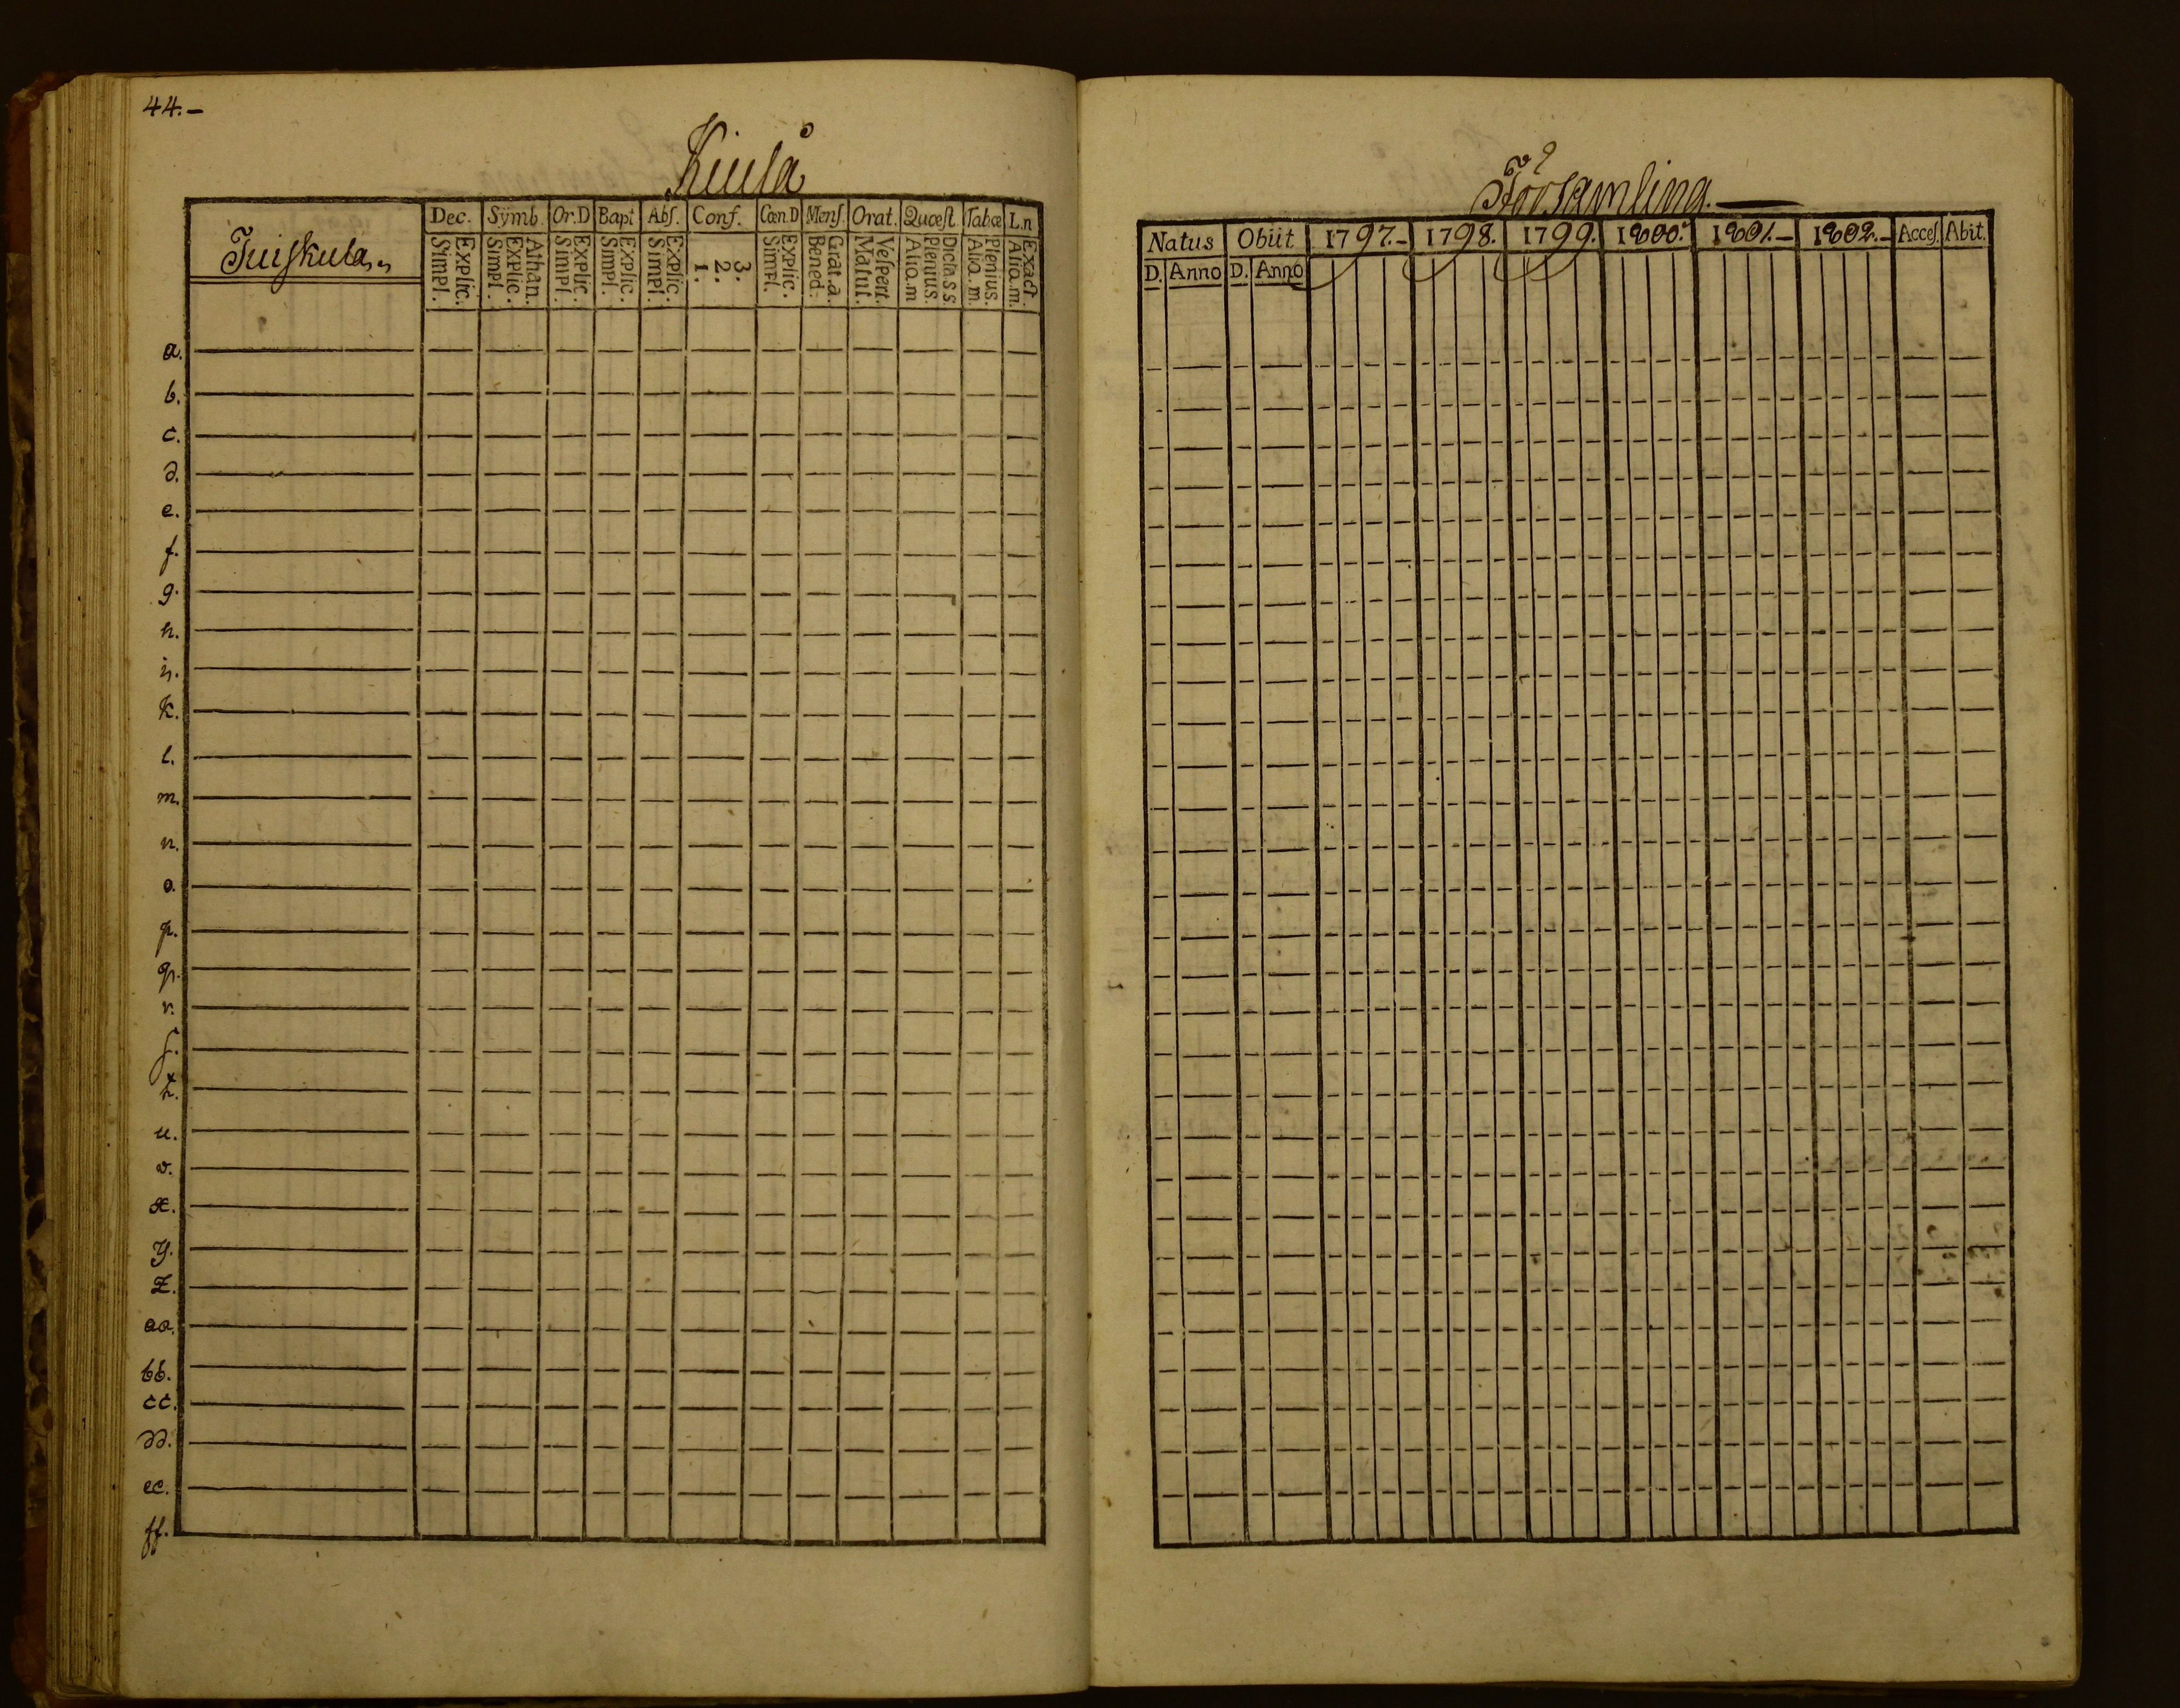 44.-
Kiulå
Tuiskula
Dec. Symb. Or.D Bapt Abſ. Conf. Cœn.D Menſ. Orat. Quæſt Tabæ L.n
Explic. Simpl. Athan. Explic. Simpl. Explic. Simpl. Explic. Simpl. Explic. Simpl. 3. 2. 1. Explic. Simpl. Grat.a. Bened. Veſpert. Matut. Dicta.s.s. Plenius. Alio.m Plenius. Alio.m. Exact. Alio.m.
a.
b.
c.
d.
e.
f.
g.
h.
i.
k.
l.
m.
n.
o.
p.
q.
r.
ſ.
t.
u.
v.
x.
y.
z.
aa.
bb.
cc.
dd.
ee.
ff.
Församling.
Natus Obiit 1797.- 1798. 1799. 1800. 1801.- 1802.- Acceſ. Abit.
D. Anno D. Anno